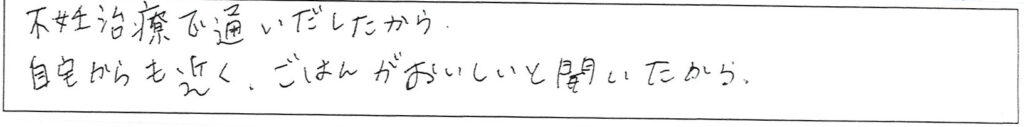 不妊治療で通いだしたから.
自宅からも近く、ごはんがおいしいと聞いたから、